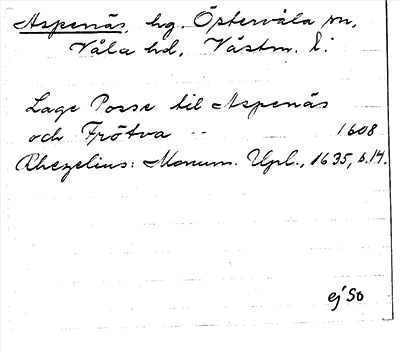 Aspenäs, hg. Östervåla sn,
Våla hd, Västm. l.
Lage Posse til Aspenäs
och Frötva -- 1608
Rhezelius: Monum. Upl., 1635, s. 14.
ej So